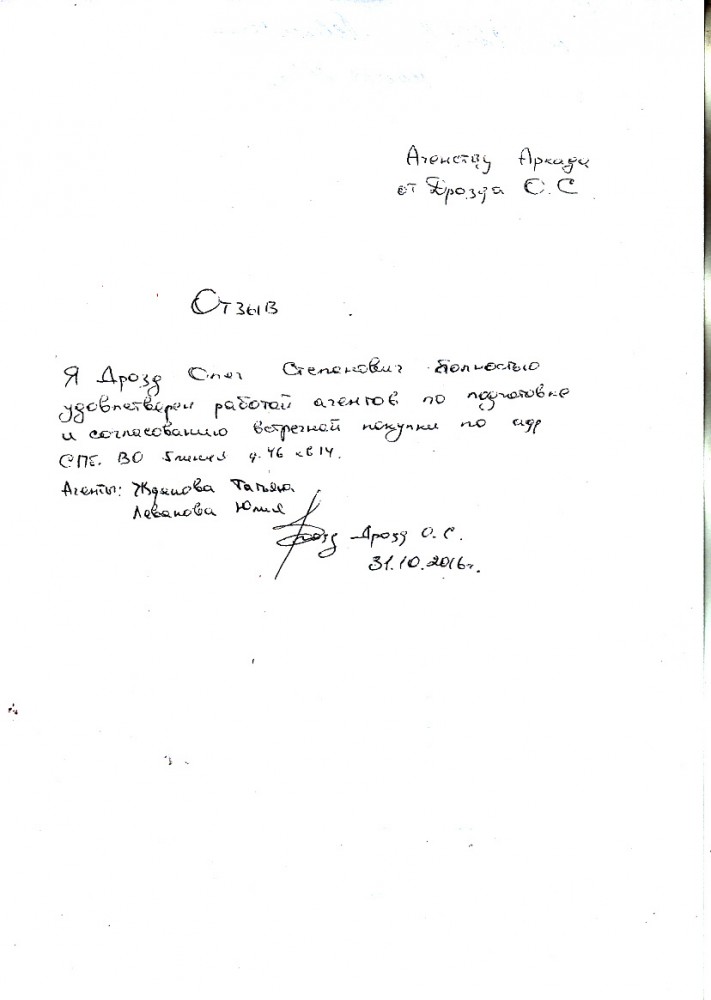 Агенству Аркада
от Дрозда О.С
Отзыв
Я Дрозд Олег Степанович полностью
удовлетворен работой агентов по подготовке
и согласованию встречной покупки по адр
СПб. ВО 5 линия д. 46 кв 14.
Агенты: Жданова Татьяна
Леванова Юлия
Дрозд Дрозд О.С.
31.10.2016г.